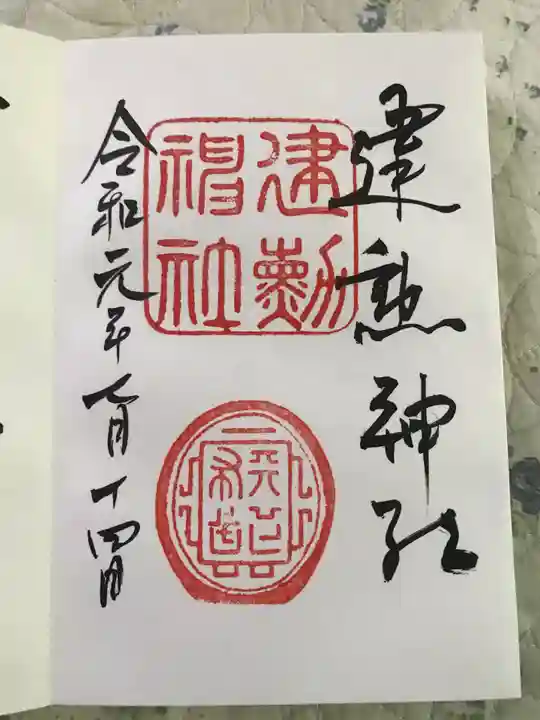 建勲神社
建勳
神社
令和元年七月十四日